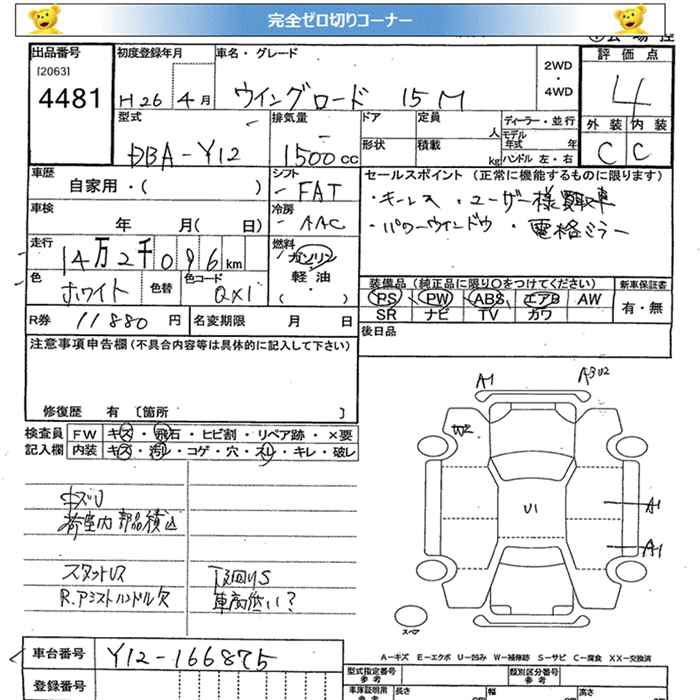 完全ゼロ切りコーナー
出品番号 初度登録年月 車名・グレード 評価点
[2063]
4481 H26 4月 ウイングロード 15M 2WD ・ 4WD 4
型式 排気量 ドア 定員 ディーラー・並行 外装 内装
DBA-Y12 1500cc 人 モデル年式 年 C C
形状 積載 kg ハンドル 左・右
車歴 シフト セールスポイント (正常に機能するものに限ります)
自家用・( ) FAT ・キーレス ・ユーザー様買取車
車検 冷房 ・パワーウインドウ ・電格ミラー
年 月( 日) AAC
走行 燃料
14万2千096km ガソリン
色 色替 色コード 軽・油
ホワイト QX1 ( )
装備品 (純正品に限り○をつけてください) 新車保証書
PS PW ABS エアB AW 有・無
SR ナビ TV カワ
R券 11880円 名変期限 月 日 後日品
注意事項申告欄(不具合内容等は具体的に記入して下さい)
修復歴 有 [箇所 ]
検査員 FW キズ・飛石・ヒビ割・リペア跡・×要
記入欄 内装 キズ・汚レ・コゲ・穴・スレ・キレ・破レ
A1
W2
U1
A1
A1
キズU
荷室内部品積込
スタットレス 下回りS
R.アシストハンドル欠 車高低い?
スペア
A-キズ E-エクボ U-凹み W-補修跡 S-サビ C-腐食 XX-交換済
車台番号 Y12-166875 型式指定番号 参考 類別区分番号 参考
登録番号 車庫証明用 参考 長さ 幅 高さ